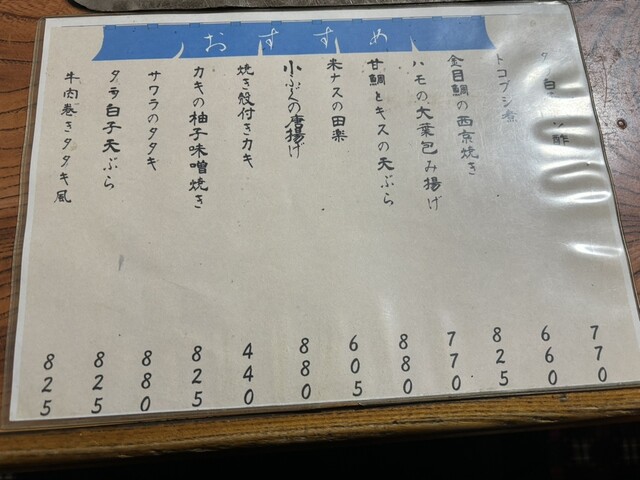 おすすめ
タ 白 ン酢 770
トコブシ煮 660
金目鯛の西京焼き 825
ハモの大葉包み揚げ 770
甘鯛とキスの天ぷら 880
米ナスの田楽 605
小ふぐの唐揚げ 880
焼き殻付きカキ 440
カキの柚子味噌焼き 825
サワラのタタキ 880
タラ白子天ぷら 825
牛肉巻きタタキ風 825